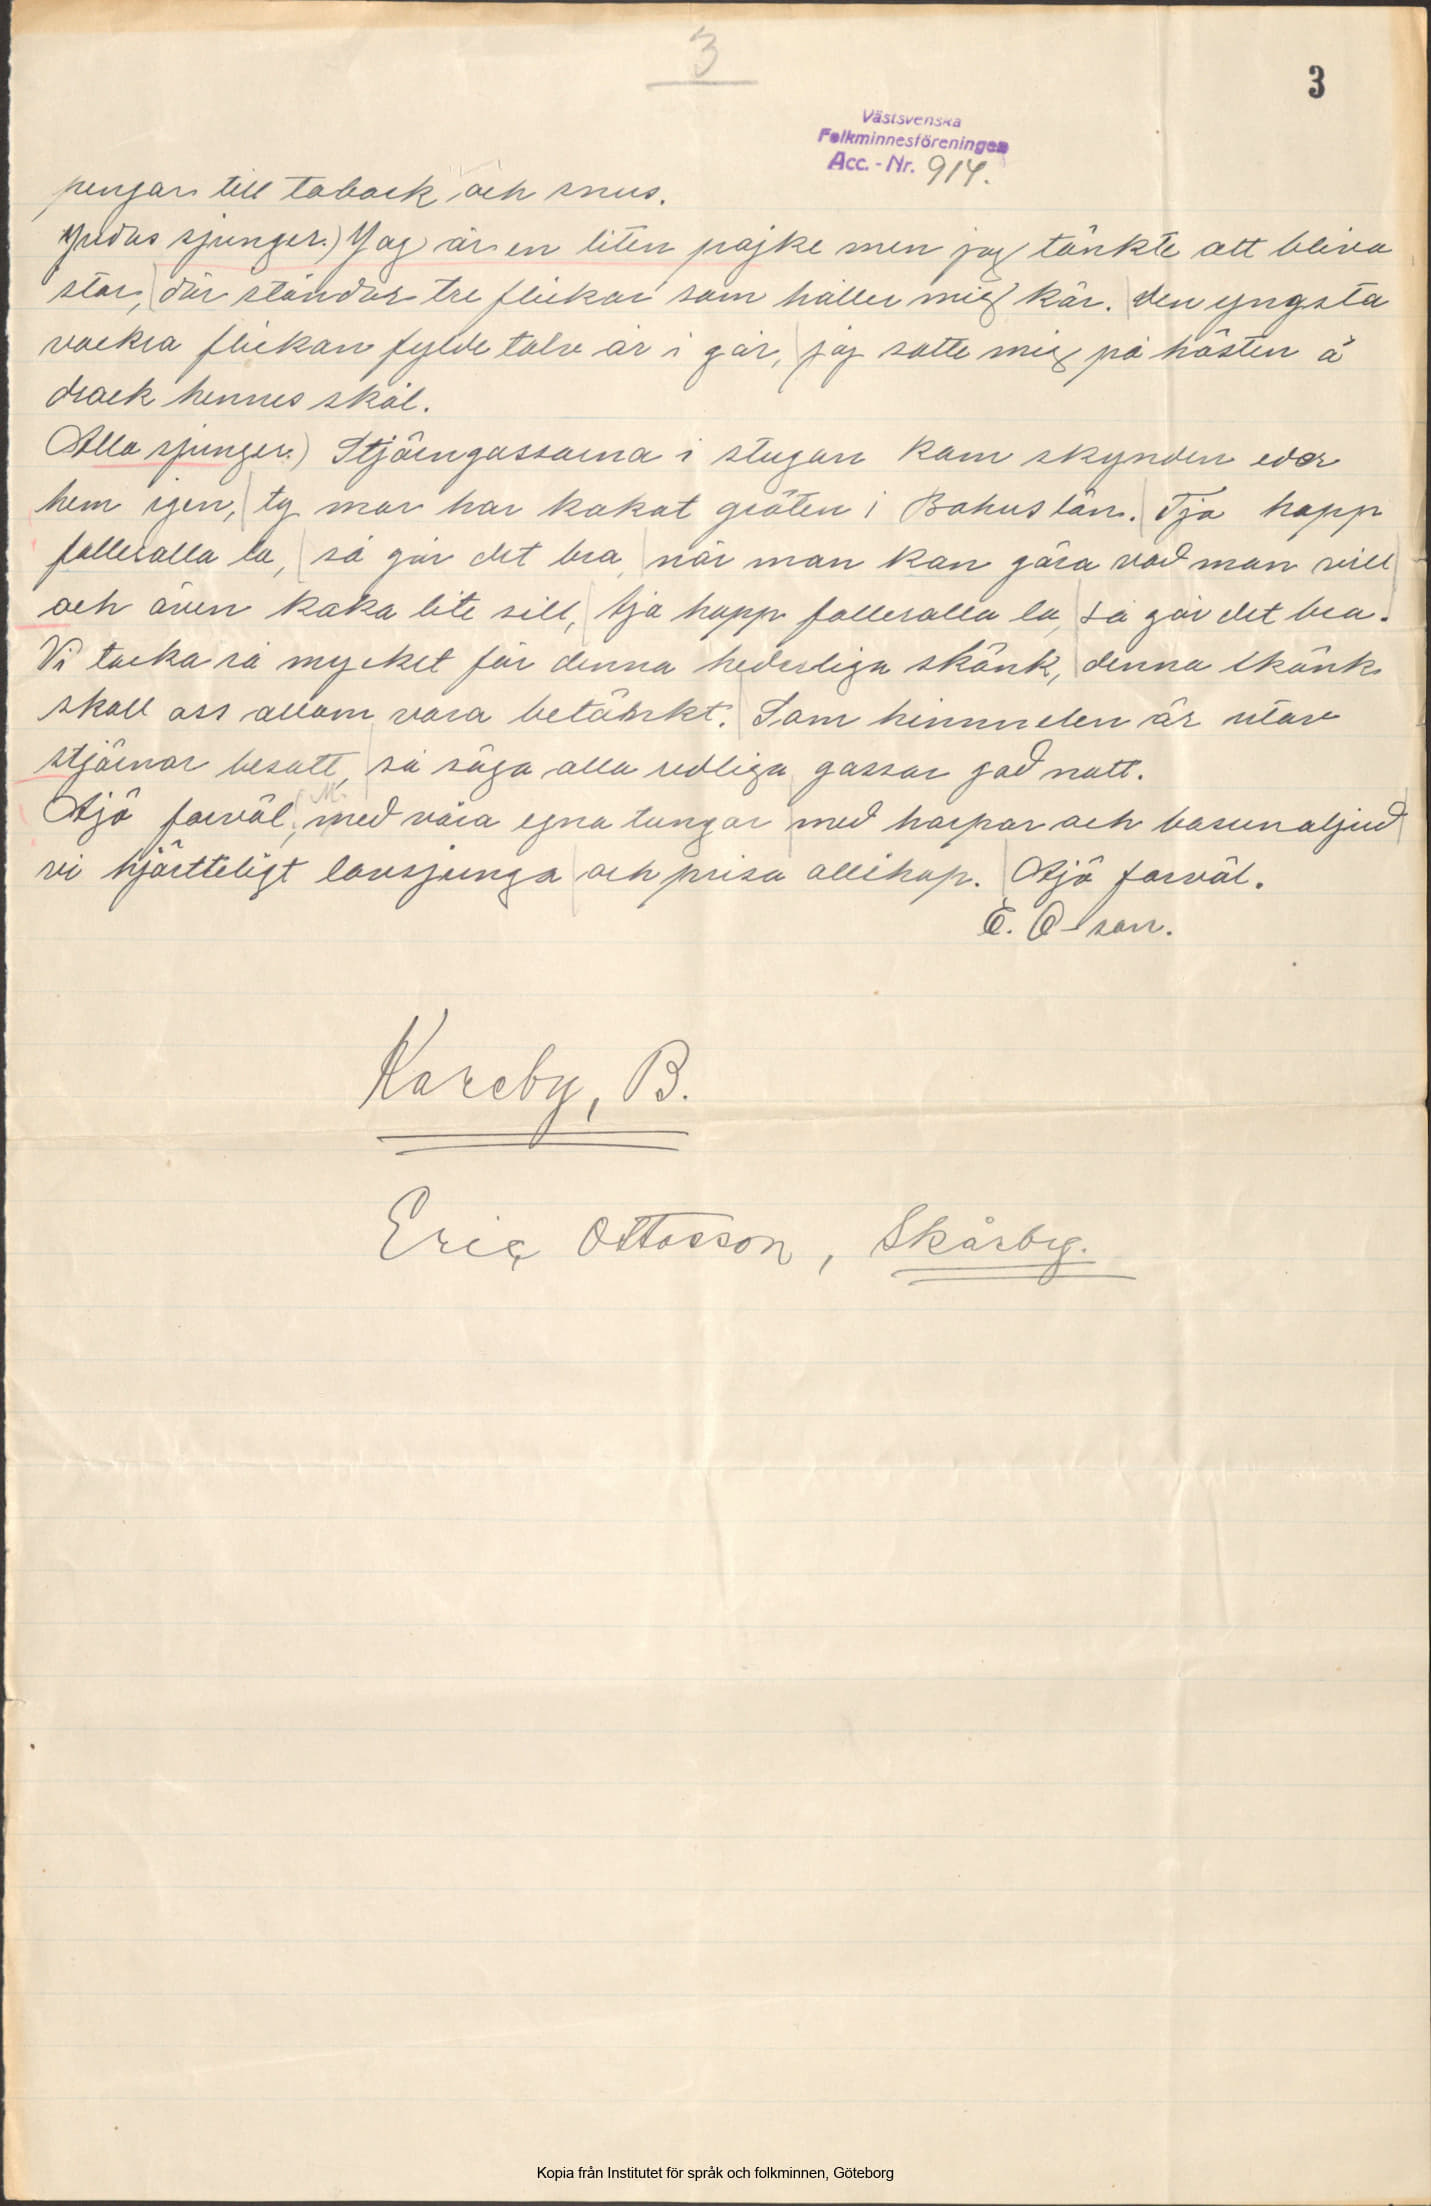 3
3
Västsvenska
Folkminnesföreningen
Acc. - Nr. 914.
pengar till toback och snus.
Judas sjunger.) Jag är en liten pojke men jag tänkte att bliva
stor, där ständar tre flickor som håller mig kär. den yngsta
vackra flickan fylde tolv år i går, jag satte mig på hästen å
drack hennes skål.
Alla sjunger.) Stjärngossarna i stugan kom skynden eder
hem igen, ty mor har kokat gröten i Bohuslän. Tjo hopp
falleralla la, så går det bra, när man kan göra vad man vill
och även koka lite sill, tjo hopp falleralla la, så går det bra.
Vi tacka så mycket för denna hederliga skänk, denna skänk
skall oss allom vara betänkt. Som himmelen är utav
stjärnor besatt, så säga alla redliga gossar god natt.
Ajö farväl, med våra egna tungor med harpor och basunaljud
vi hjärtteligt lovsjunga och prisa allihop. Ajö farväl.
E. O-son.
Kareby, B.
Eric Ottosson, Skårby.
Kopia från Institutet för språk och folkminnen, Göteborg